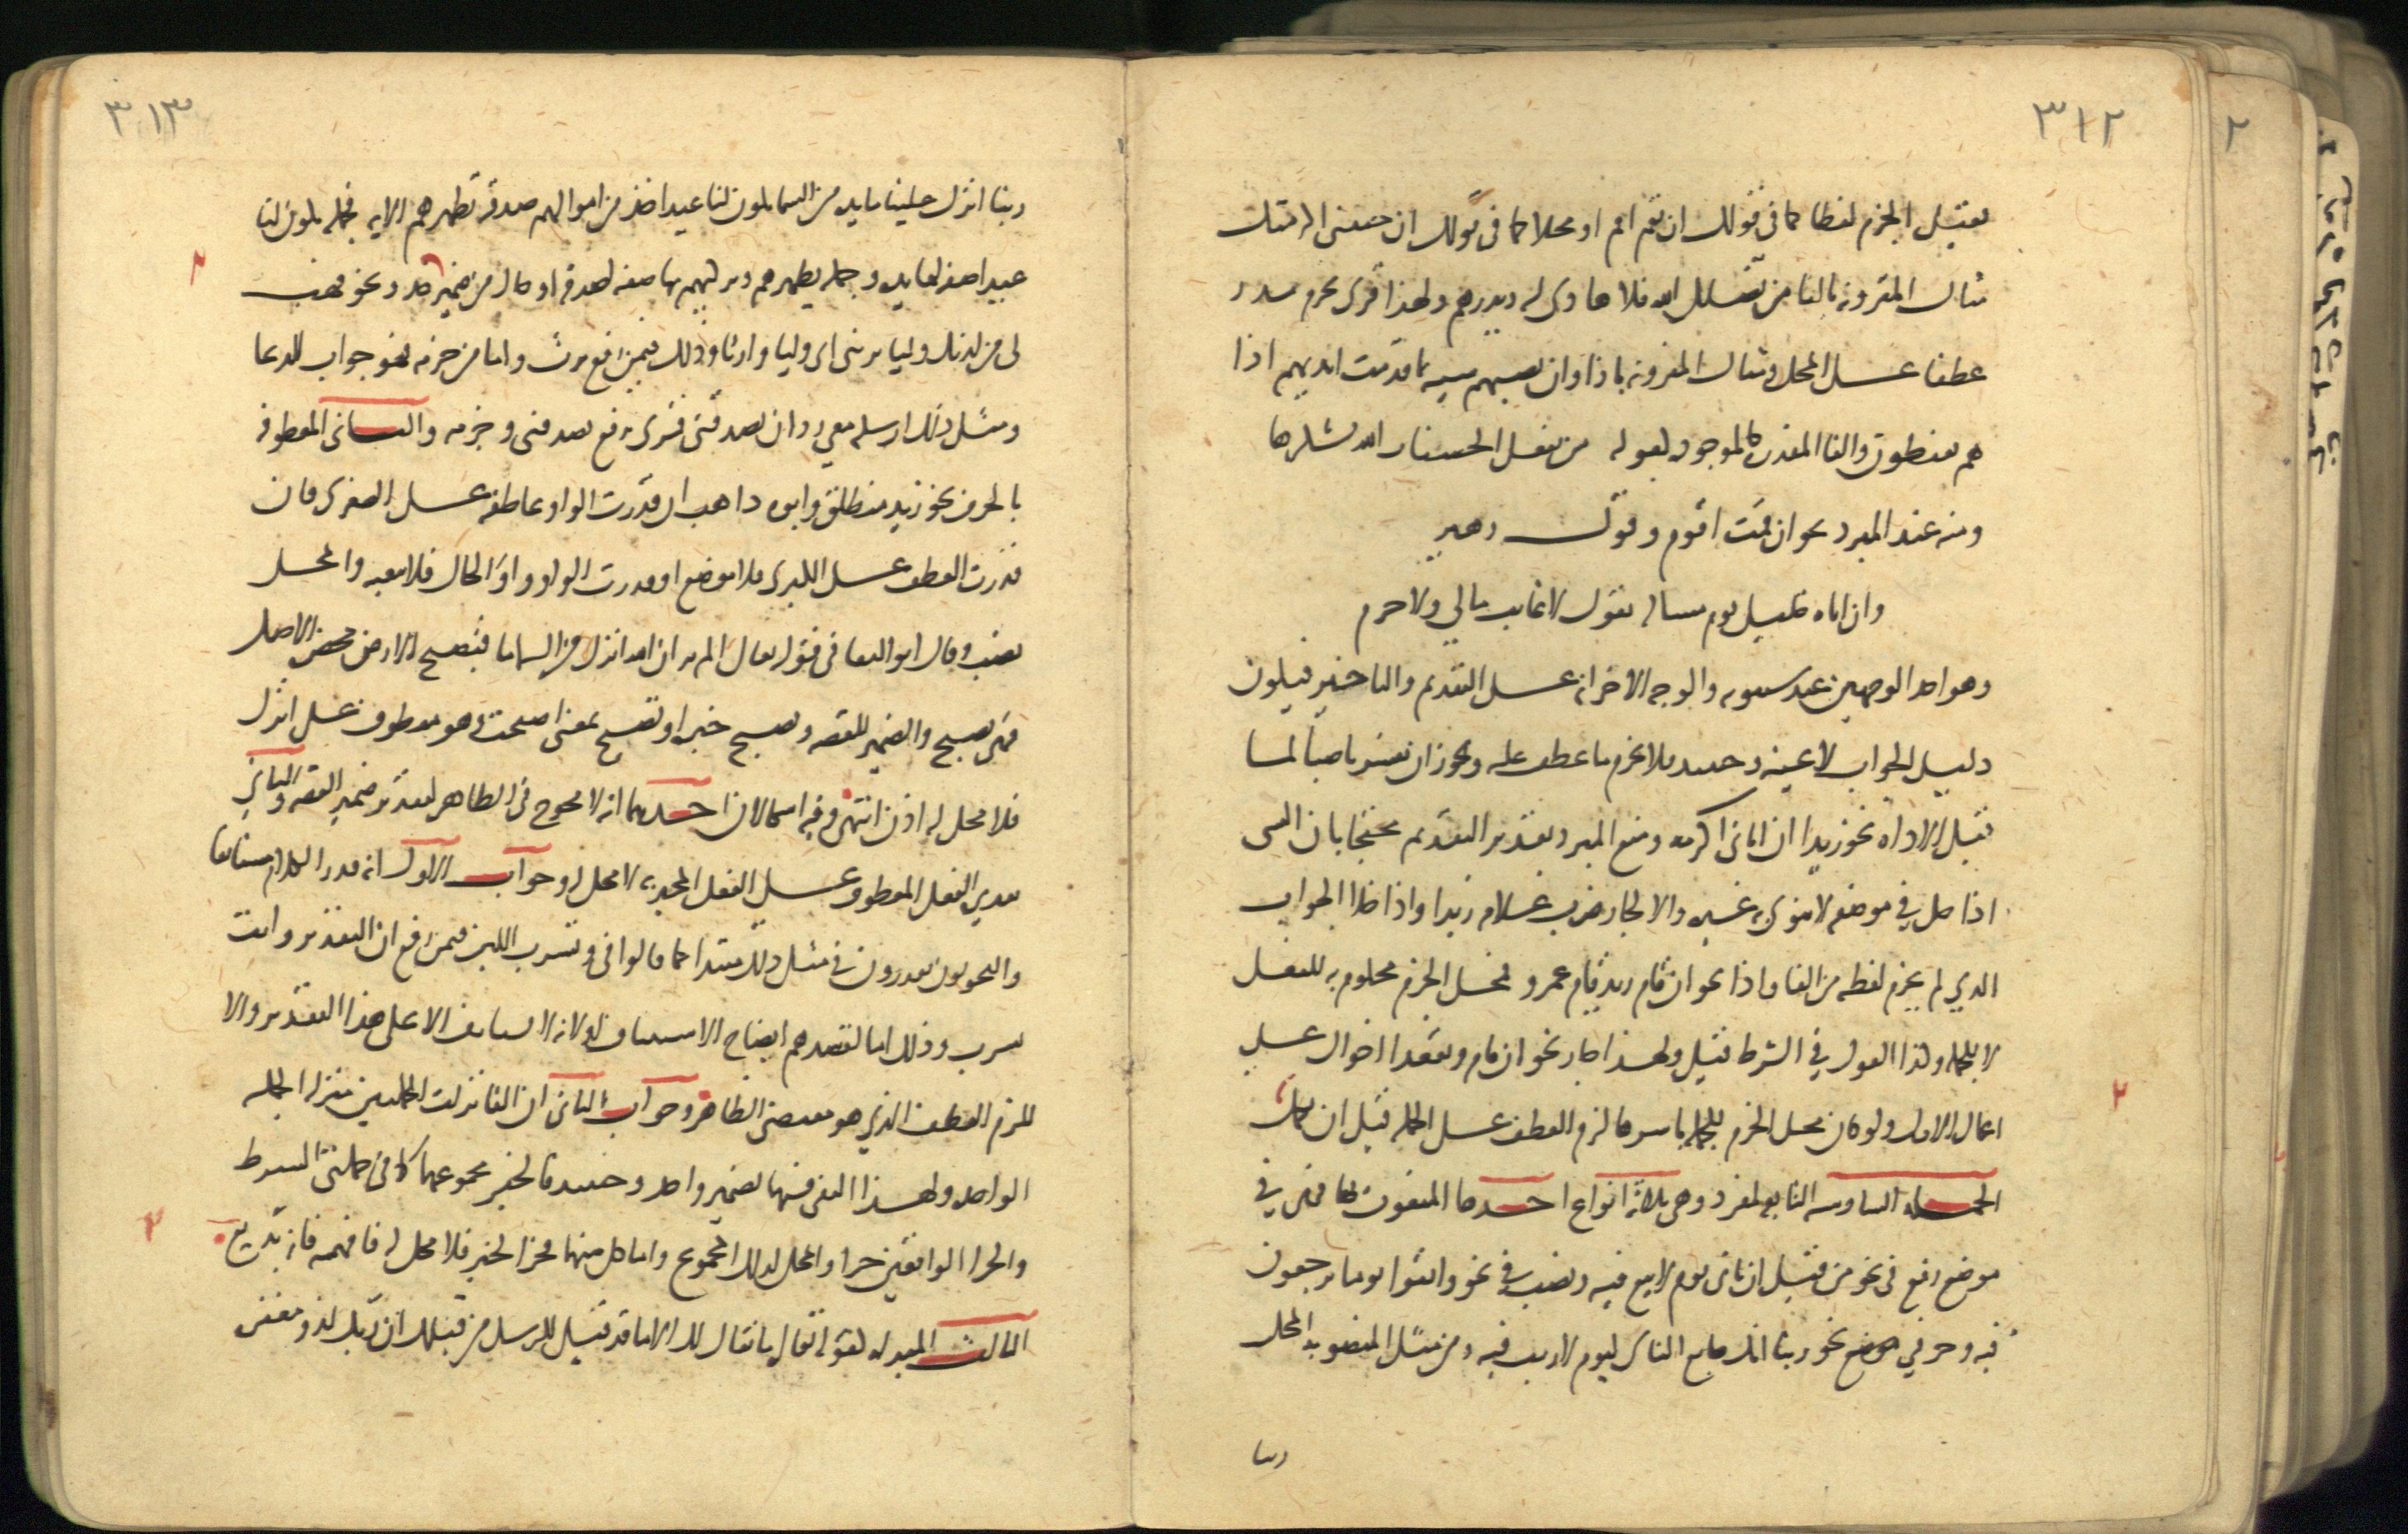 ٣١٢
يقبل الجزم لفظا كما في قولك ان تقم اقم او محلا كما في قولك ان جئتني اكرمتك
مثال المقرونة بالفا من يضلل الله فلا هادي له ويذرهم ولهذا قرى بجزم يذر
عطفا على المحل ومثال المقرونة باذا وان تصبهم سيية بما قدمت ايديهم اذا
هم يقنطون والفا المقدرة كالموجودة كقوله من يفعل الحسنات الله يشكرها
ومنه عند المبرد نحو ان قمت اقوم وقول زهير
وان اتاه خليل يوم مسالة يقول لا غايب مالي ولا حرم
وهو احد الوجهين عند سيبويه والوجه الاخر انه على التقديم والتاخير فيكون
دليل الجواب لا عينه وحينيذ فلا يجزم ما عطف عليه ويجوز ان يفسر ناصبا لما
قبل الاداة نحو زيدا ان اتاني اكرمه ومنع المبرد تقدير التقديم محتجا بان الشي
اذا حل في موضعه لا ينوي به غيره والا لجاز ضرب غلامه زيدا واذا خلا الجواب
الذي لم يجزم لفظه من الفا واذا نحو ان قام زيد قام عمرو فمحل الجزم محكوم به للفعل
لا للجملة وكذا القول في الشرط قيل ولهذا جاز نحو ان قام ويقعدا اخواك على
اعمال الاول ولو كان محل الجزم للجملة باسرها لزم العطف على الجملة قبل ان تكمل
الجملة السادسة التابعة لمفرد وهي ثلاثة انواع احدها المنعوت بها فهي في
موضع رفع في نحو من قبل ان ياتي يوم لا بيع فيه ونصب في نحو واتقوا يوما ترجعون
فيه وجر في موضع نحو ربنا انك جامع الناس ليوم لا ريب فيه ومن مثل المنصوبة المحل
ربنا
٣١٣
ربنا انزل علينا مايدة من السما تكون لنا عيدا خذ من اموالهم صدقة تطهرهم الاية فجملة تكون لنا
عيدا صفة لمايدة وجملة تطهرهم وتزكيهم بها صفة لصدقة او حال من ضمير خذ ونحو فهب
لي من لدنك وليا يرثني اي وليا وارثا وذلك فيمن رفع يرث واما من جزمه فهو جواب للدعا
ومثل ذلك ارسله معي ردا يصدقني قرى برفع يصدقني وجزمه والثاني المعطوفة
بالحرف نحو زيد منطلق وابوه ذاهب ان قدرت الواو عاطفة على الصغرى فان
قدرت العطف على الكبرى فلا موضع او قدرت الواو واو الحال فلا تبعية والمحل
نصب وقال ابو البقا في قوله تعالى الم تر ان الله انزل من السما ما فتصبح الارض مخضرة الاصل
فهي تصبح والضمير للقصة وتصبح خبره او تصبح بمعنى اصبحت وهو معطوف على انزل
فلا محل له اذن انتهى وفيه اشكالان احدهما انه لا محوج في الظاهر لتقدير ضمير القصة والثاني
تقدير الفعل المعطوف على الفعل المخبر به لا محل له وجواب الاول انه قدر الكلام مستانفا
والنحويون يقدرون في مثل ذلك مبتدا كما قالوا في وتشرب اللبن فيمن رفع ان التقدير وانت
تشرب وذلك اما لقصدهم ايضاح الاستيناف او لانه لا يستانف الا على هذا التقدير والا
للزم العطف الذي هو مقتضى الظاهر وجواب الثاني ان الفا نزلت الجملتين منزلة الجملة
الواحدة ولهذا اكتفى فيهما بضمير واحد وحينيذ فالخبر مجموعهما كما في جملتي الشرط
والجزا الواقعتين خبرا والمحل لذلك المجموع واما كل منهما فجز الخبر فلا محل له فافهمه فانه بديع
الثالث المبدلة كقوله تعالى ما يقال لك الا ما قد قيل للرسل من قبلك ان ربك لذو مغفرة